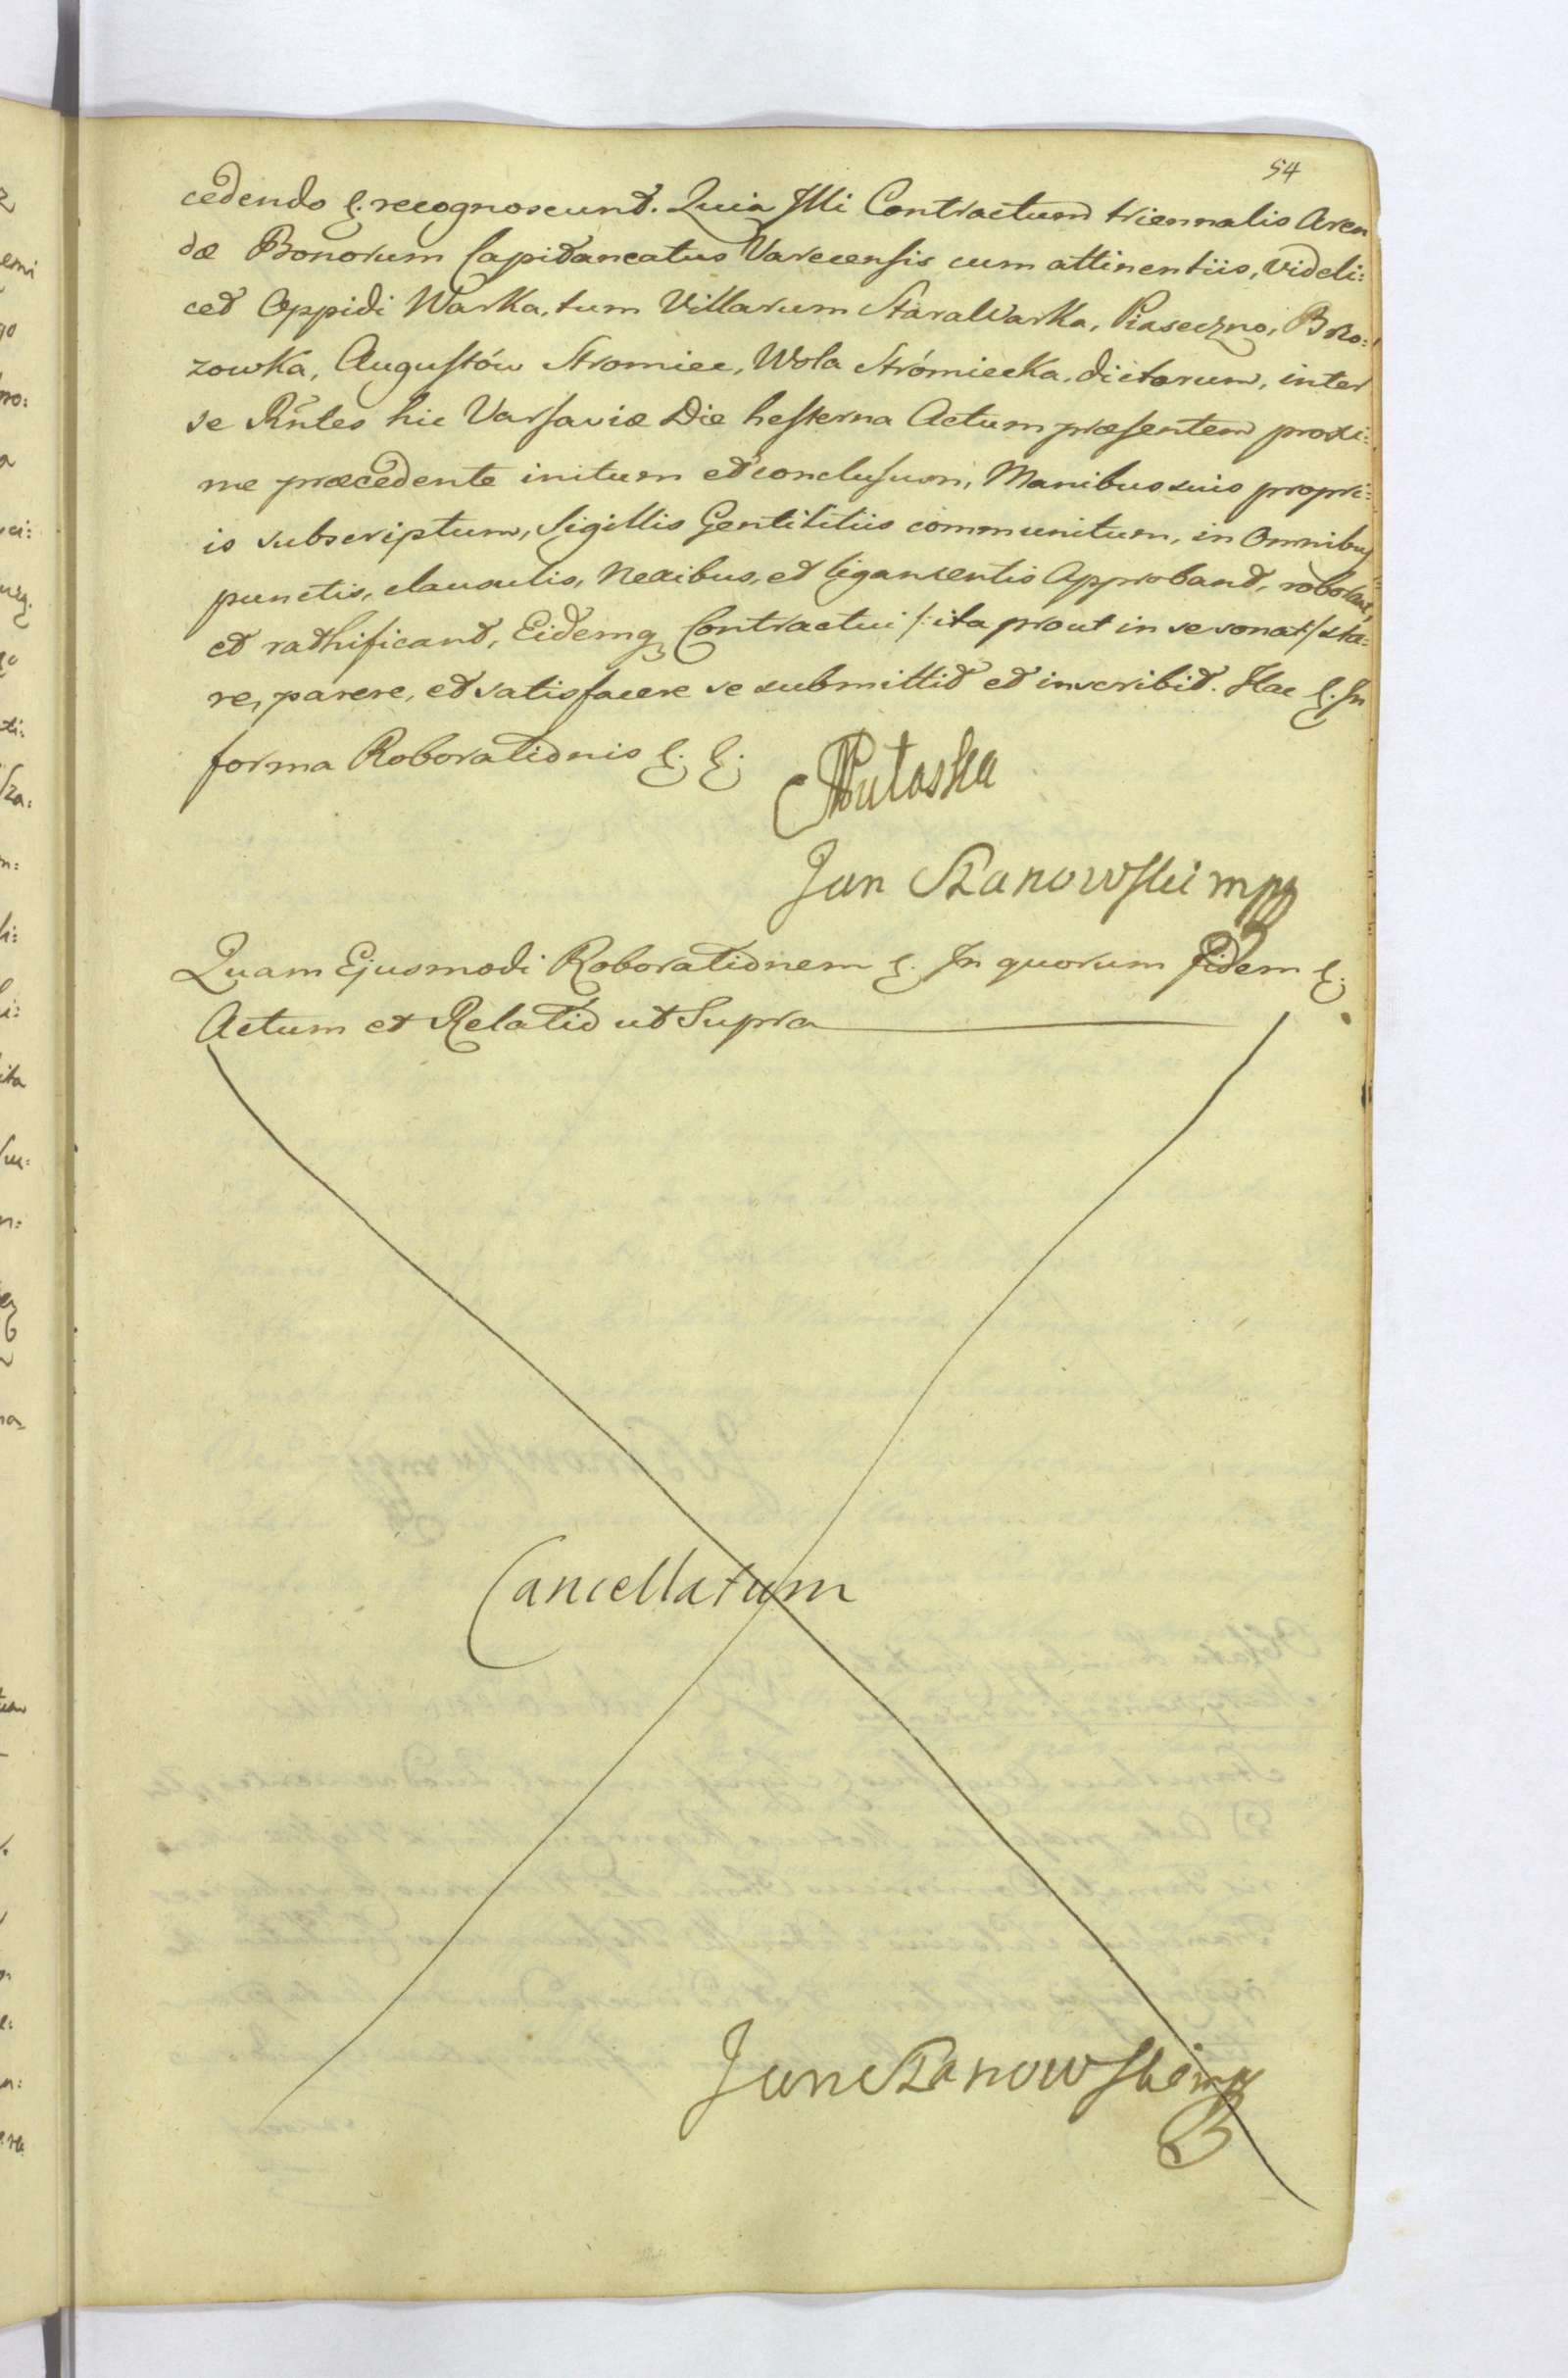 54
cedendo &. recognoscunt. Quia Illi Contractum triennalis Aren
dæ Bonorum Capitaneatus Varecensis cum attinentiis, videli:
cet Oppidi Warka, tum Villarum Stara Warka, Piaseczno, Brzo:
zowka, Augustów Stromiec, Wola Strómiecka, dictarum, inter
se Rñtes hic Varsaviæ Die hesterna Actum præsentem proxi:
me præcedente initum et conclusum, Manibus suis propri:
is subscriptum, Sigillis Gentilitiis communitum, in Omnibus
punctis, clausulis, Nexibus, et ligamentis Approbant, roborant,
et rathificant, Eidemq Contractui /: ita prout in se sonat / sta:
re, parere, et satisfacere se submittit et inscribit. Hac &. In
forma Roborationis &. &.
Jan Szanowski mp
Quam Ejusmodi Roborationem &. In quorum fidem &.
Actum et Relatio ut Supra
Cancellatum
Jan Szanowski mp